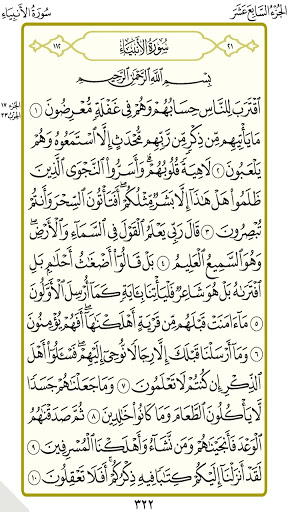 الجزء السابع عشر
سورة الأنبياء
٢١
سورة الأنبياء
١١٢
بسم الله الرحمن الرحيم
الجزء ١٧
الحزب ٣٣
اقترب للناس حسابهم وهم في غفلة معرضون ١
ما يأتيهم من ذكر من ربهم محدث إلا استمعوه وهم
يلعبون ٢ لاهية قلوبهم وأسروا النجوى الذين
ظلموا هل هذا إلا بشر مثلكم أفتأتون السحر وأنتم
تبصرون ٣ قال ربي يعلم القول في السماء والأرض
وهو السميع العليم ٤ بل قالوا أضغاث أحلام بل
افتراه بل هو شاعر فليأتنا بآية كما أرسل الأولون
٥ ما آمنت قبلهم من قرية أهلكناها أفهم يؤمنون
٦ وما أرسلنا قبلك إلا رجالا نوحي إليهم فسئلوا أهل
الذكر إن كنتم لا تعلمون ٧ وما جعلناهم جسدا
لا يأكلون الطعام وما كانوا خالدين ٨ ثم صدقناهم
الوعد فأنجيناهم ومن نشاء وأهلكنا المسرفين ٩
لقد أنزلنا إليكم كتابا فيه ذكركم أفلا تعقلون ١٠
٣٢٢